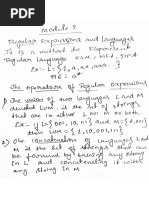 Module 2
Regular Expressions and languages
It is a method to Represent
Regular language
Ex:- L = {
The operators of Regular Expressions
1) The union of two languages L and M
denoted LUM, is the set of strings
that are in either L or M or both.
Ex:- if L = {001, 10, 111} and M = {
then LUM = {
2) The concatenation of Languages L and
M is the set of strings that can
be formed by taking any string
in L and concatenating it with
any string in M.